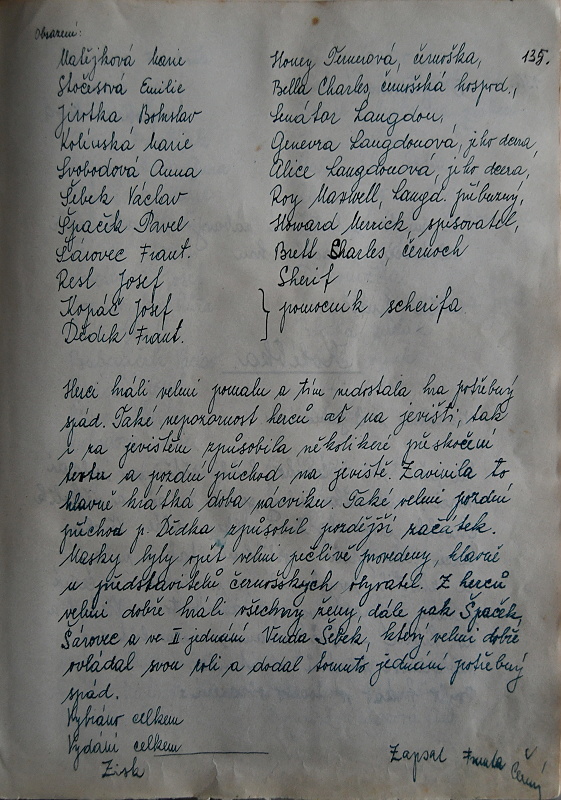 Obsazení:
135.
Matějková Marie Honey Turnerová, černoška,
Stočesová Emilie Bella Charles, černošská hospod.,
Jirotka Bohuslav Senátor Langdon,
Kolínská Marie Genevra Langdonová, jeho dcera,
Svobodová Anna Alice Langdonová, jeho dcera,
Šebek Václav Roy Maxwell, Langd. příbuzný,
Špaček Pavel Howard Merrick, spisovatel,
Šárovec Frant. Brett Charles, černoch
Resl Josef Sherif
Kopáč Josef } pomocník scherifa
Dědek Frant.
Herci hráli velmi pomalu a tím nedostala hra potřebný
spád. Také nepozornost herců ať na jevišti, tak
i za jevištěm způsobila několikeré přeskočení
textu a pozdní příchod na jeviště. Zavinila to
hlavně krátká doba nácviku. Také velmi pozdní
příchod p. Dědka způsobil pozdější začátek.
Masky byly opět velmi pečlivě provedeny, hlavně
u představitelů černošských obyvatel. Z herců
velmi dobře hráli všechny ženy, dále pak Špaček,
Šárovec a ve II. jednání Venda Šebek, který velmi dobře
ovládal svou roli a dodal tomuto jednání potřebný
spád.
Vybráno celkem
Vydání celkem
Zisk
Zapsal Franta Černý